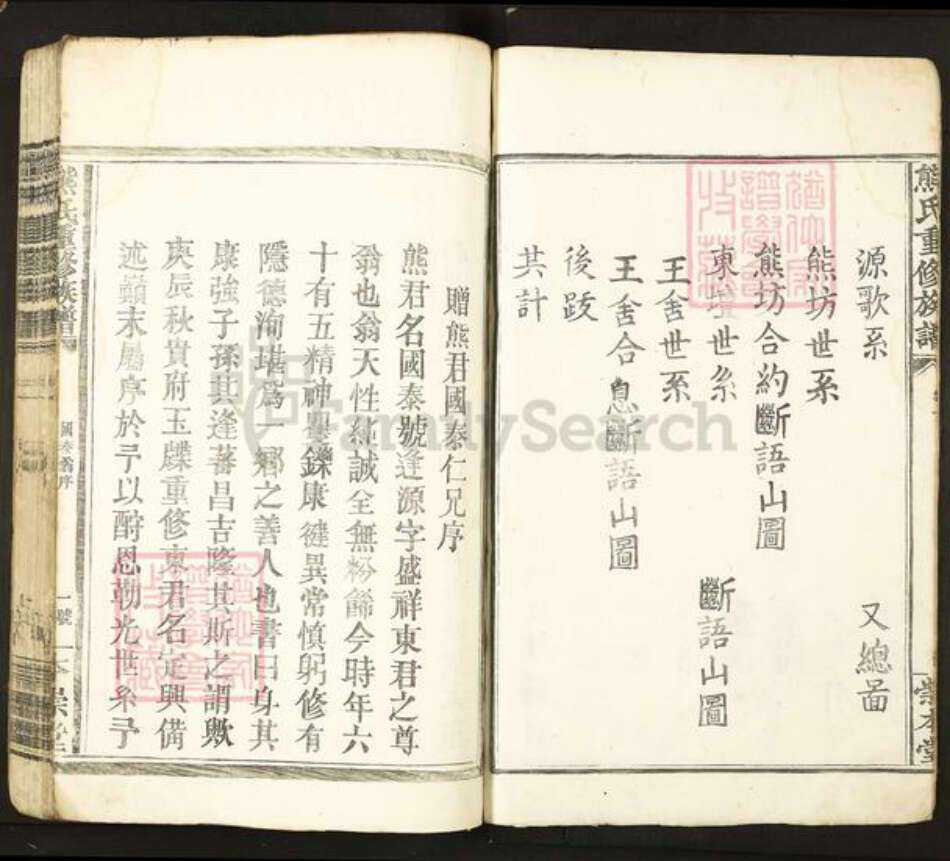 熊氏重修族譜
崇本堂
源歌系 又總啚
熊坊世系
熊坊合約斷語山圖
東壇世系 斷語山圖
王舍世系
王舍合息斷語山圖
後跋
共計
贈熊君國泰仁兄序
熊君名國泰號逢源字盛祥東君之尊
翁也翁天性純誠全無粉飾今時年六
十有五精神矍鑠康健異常慎躬修有
隱德洵堪爲一鄉之善人也書曰身其
康強子孫其逢蕃昌吉隆其斯之謂歟
庚辰秋貴府玉牒重修東君名定興備
述巔末屬序於予以酧恩勒光世系予
熊氏重修族譜
國泰翁序
一號
FamilySearch